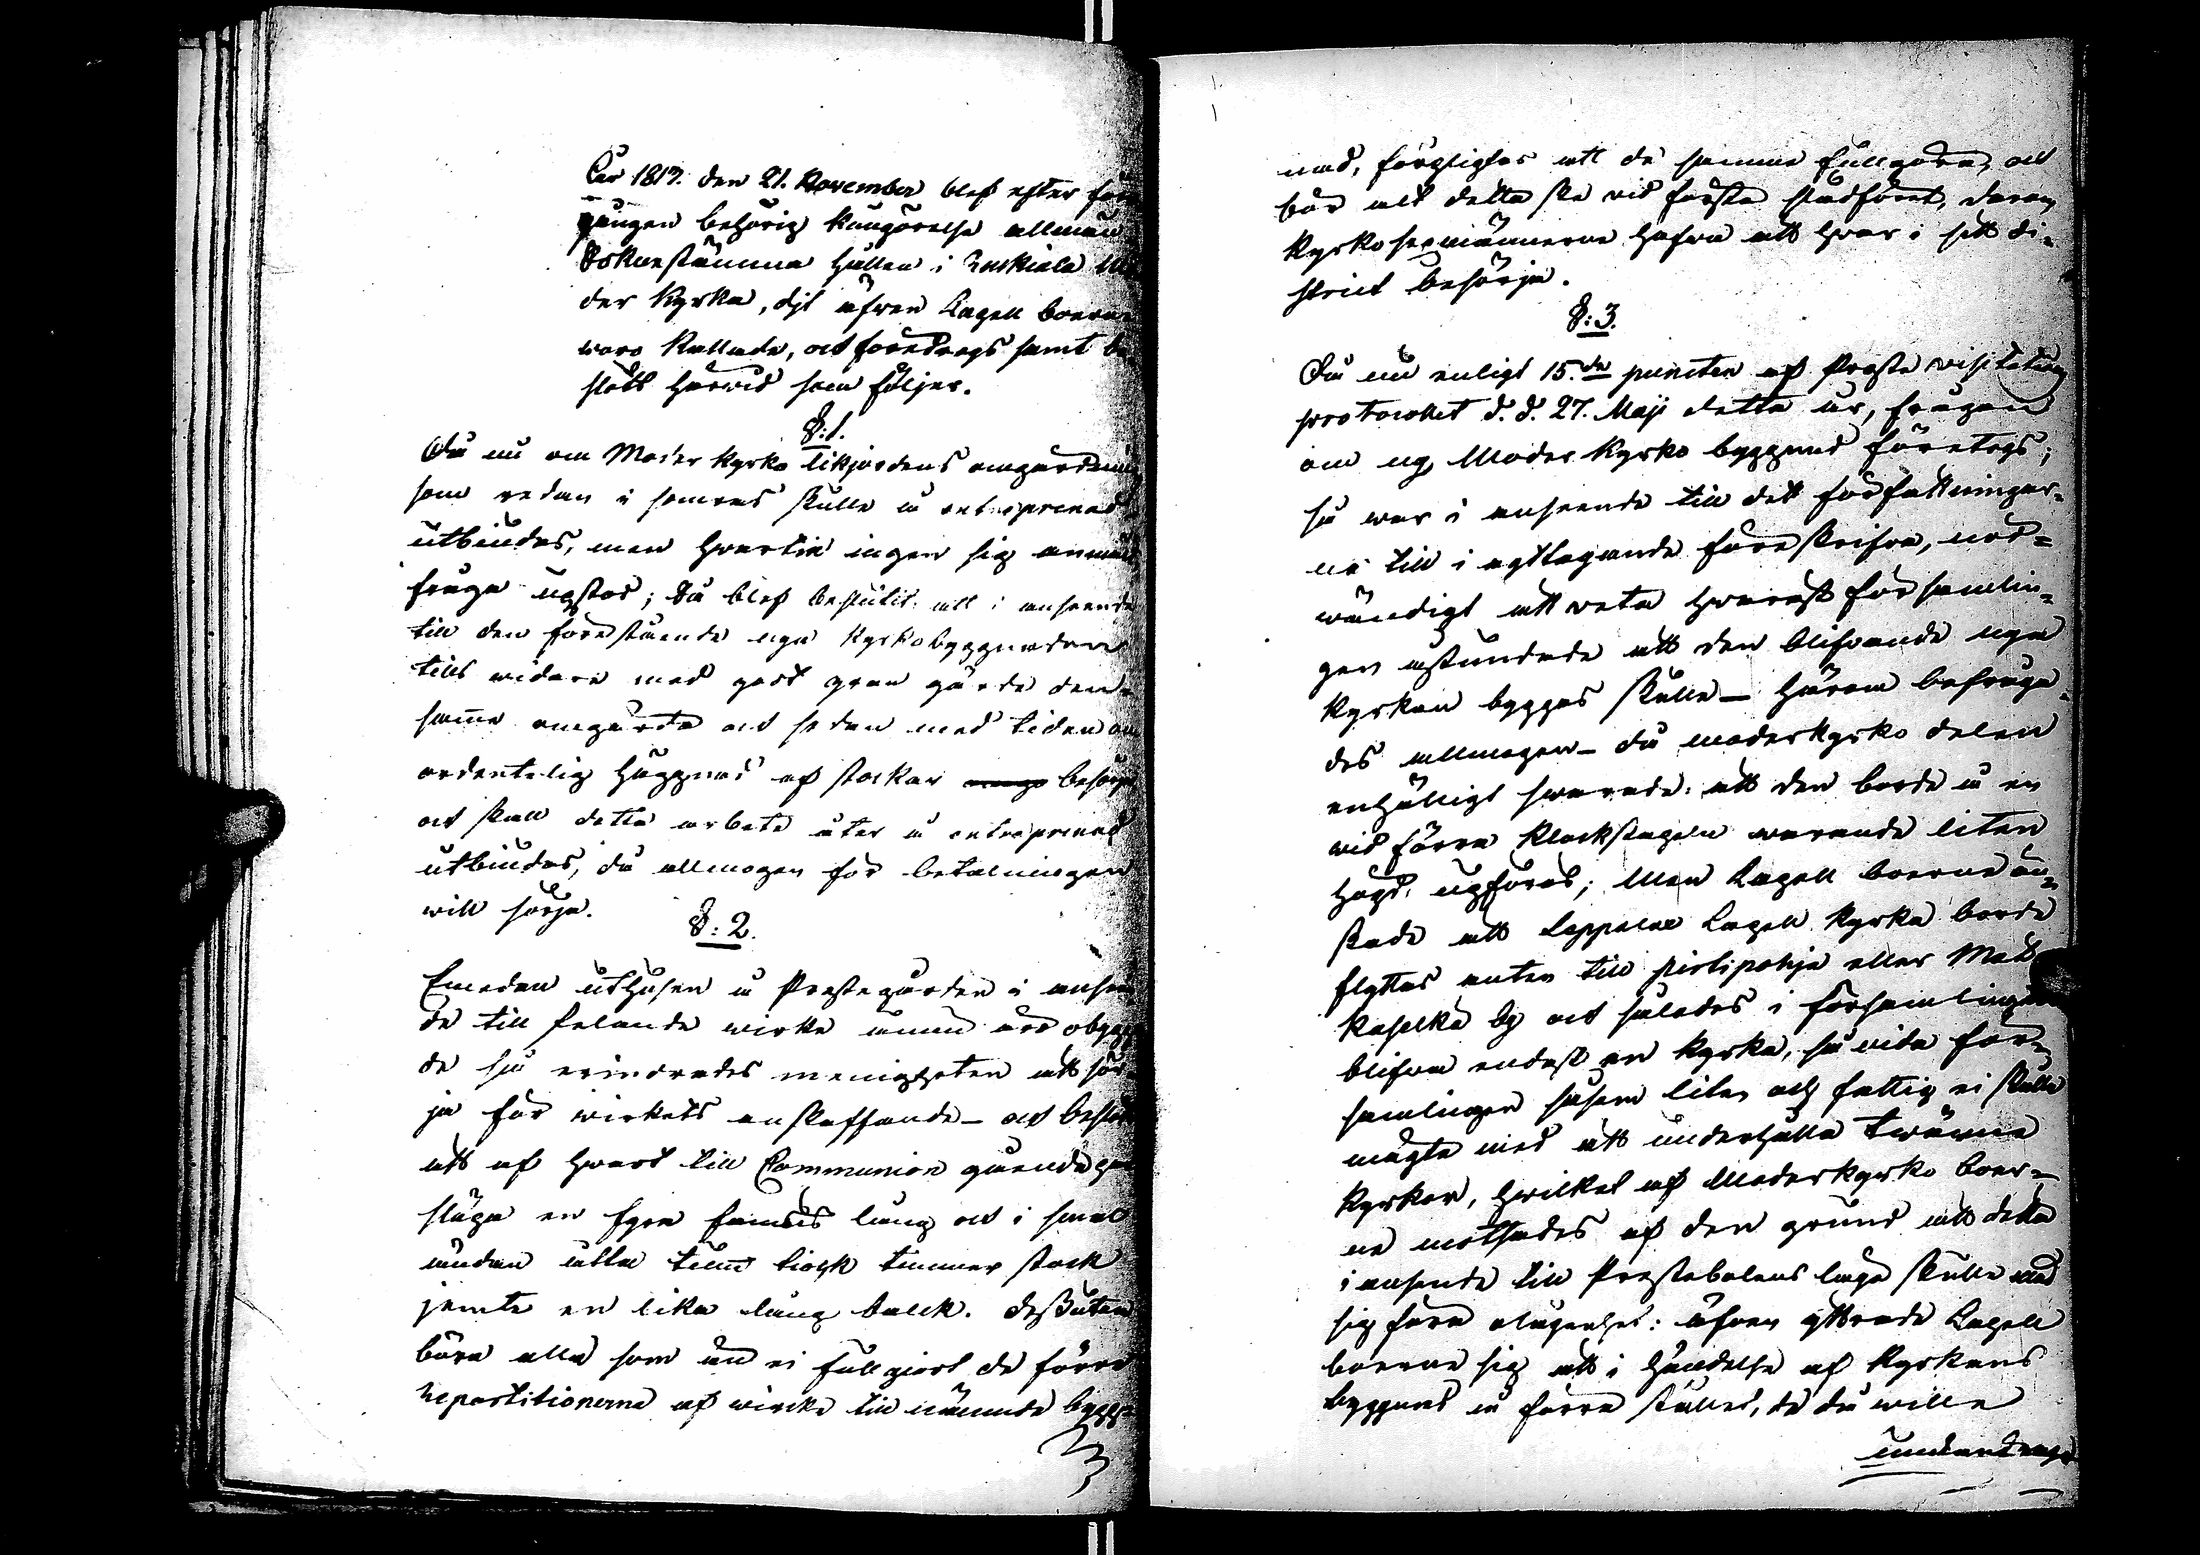 År 1817. den 21. November blef efter före
gången behörig kungörelse allmän
Sokne stämma hållen i Ruskiala Mo
der Kyrka, dijt äfven Lagell boerne
woro kallade, och föredrogs samt be
slöts härwid som följer.
§:1.
Då nu om Moder kyrko likjordens omgärdning
som redan i somras skulle å entreprenad
utbindas, men hwartill ingen sig anmält
fråga upstod; Då blef beslutit att i anseende
till den förestående nya kyrkobyggnaden
tills widare med god gran gärde den
samma omgärda och sedan med tiden en
ordentelig häggnad af stockar besörja
och skall detta arbete åter å entreprenad
utbindas, då allmogen för betalningen
will sörja.
§:2.
Emedan uthusen å Prestegården i ansen
de till felande wirke ännu äro obygg
de så erindrades menigheten att sör
ja för wirkets anskaffande - och beslöts
att af hwart till Communion gående par
släpa en fyra famnars lång och i smal
ändan åtta tum tiock timmer stock
jemte en lika lång balck. Dessutom
böra alla som än ei fullgiort de förra
Repartitionerna af wircke till nämnde bygg-
nad, förpligtas att de samma fullgöra, och
bör alt detta ske vid första slädföret, derom
kyrko sexmännerne hafwa att hwar i sitt di-
strict besörja.
§:3.
Då nu enligt 15.de puncten af Proste visitations
protocollet d. d. 27. Maji detta år, frågan
om ny Moder Kyrko byggnad företogs;
så war i anseende till det författningar-
ne till i agttagande föreskrifva, nöd=
wändigt att weta hwarest församlin-
gen åstundade att den blifvande nya
Kyrkan byggas skulle - Härom befråga-
des allmogen - då moderkyrko delen
enhälligt swarade: att den borde å en
wid förra Klockstapeln warande liten
högd, upföras; Men Lagell boerne ön-
skade att Cappellet Lagell Kyrka borde
flyttas anten till Pirtipohja eller Mat
kaselkä by och således i församlingen
blifva endast en kyrka, så vida för-
samlingen såsom liten och fattig ei skulle
mägta med att underhålla twänne
Kyrkor, hwilket af Moderkyrko boer-
ne motsades af den grund att detta
i ansende till Prestebolens läge skulle med
sig föra olägenhet: äfven yttrade Lagell
boerne sig att i händelse af Kyrkans
byggnad å förra stället, de då wille
undandraga